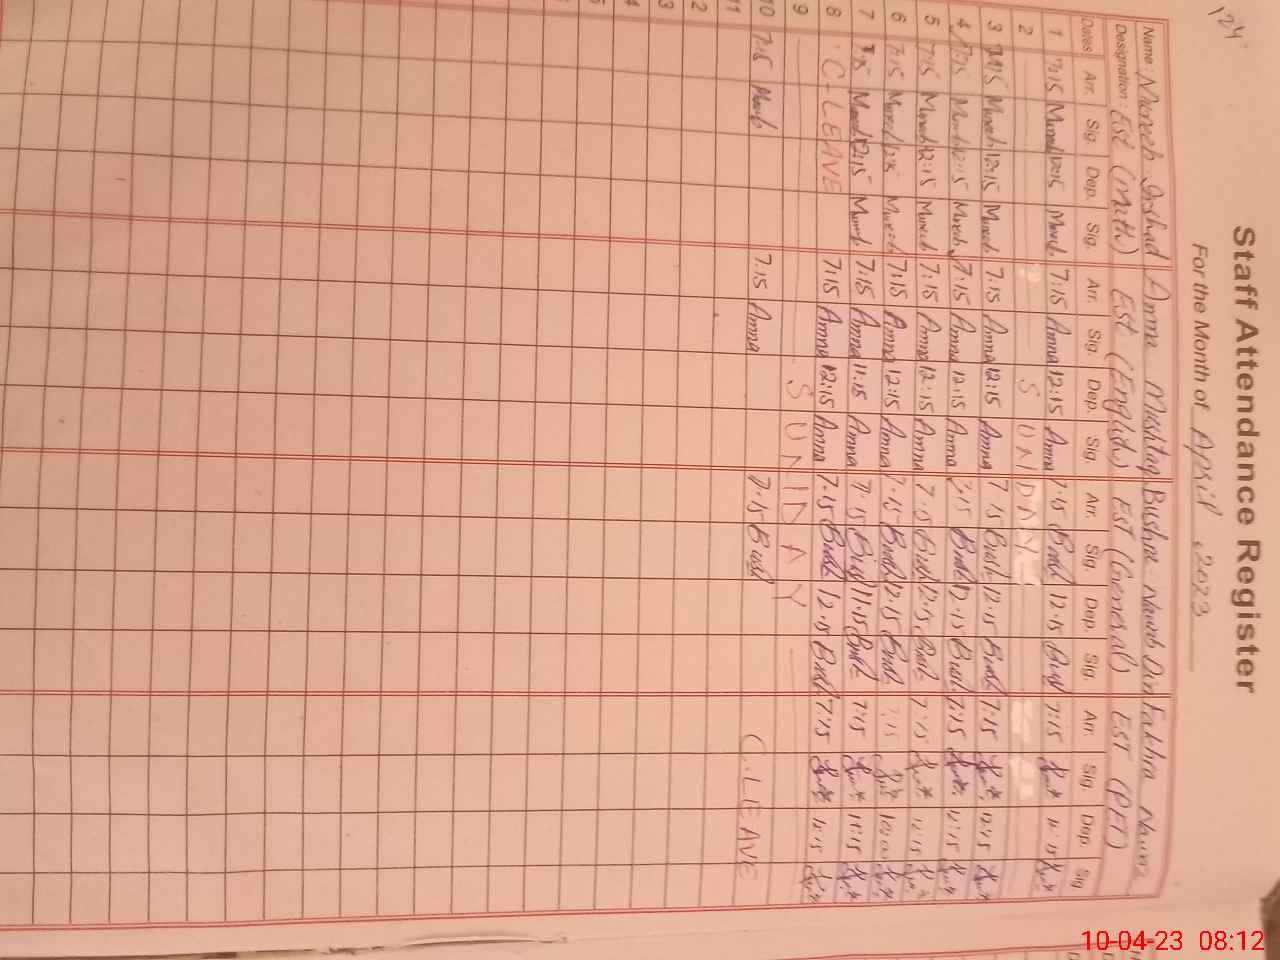 124
Staff Attendance Register
For the Month of April, 2023
Name: Muneeb Irshad Amna Mushtaq Bushra Nawab Din Fakhra Nawaz
Designation: Est (Math) Est (English) EST (General) EST (PET)
Dates Arr. Sig. Dep. Sig. Arr. Sig. Dep. Sig. Arr. Sig. Dep. Sig. Arr. Sig. Dep. Sig
1 7:15 Muneeb 12:15 Muneeb 7:15 Amna 12:15 Amna 7.15 Bush 12.15 Bush 7:15 12:15
2 SUNDAY
3 7:15 Muneeb 12:15 Muneeb 7:15 Amna 12:15 Amna 7.15 Bush 12.15 Bush 7:15 12:15
4 7:15 Muneeb 12:15 Muneeb 7:15 Amna 12:15 Amna 7.15 Bush 12.15 Bush 7:15 12:15
5 7:15 Muneeb 12:15 Muneeb 7:15 Amna 12:15 Amna 7.15 Bush 12.15 Bush 7:15 12:15
6 7:15 Muneeb 12:15 Muneeb 7:15 Amna 12:15 Amna 7.15 Bush 12.15 Bush 7:15 10:00
7 7:15 Muneeb 12:15 Muneeb 7:15 Amna 11:15 Amna 7.15 Bush 11.15 Bush 7:15 11:15
8 C-LEAVE 7:15 Amna 12:15 Amna 7.15 Bush 12.15 Bush 7:15 12:15
9 SUNDAY
10 7:15 Muneeb 7.15 Amna 7.15 Bush C.LEAVE
11
10-04-23 08:12